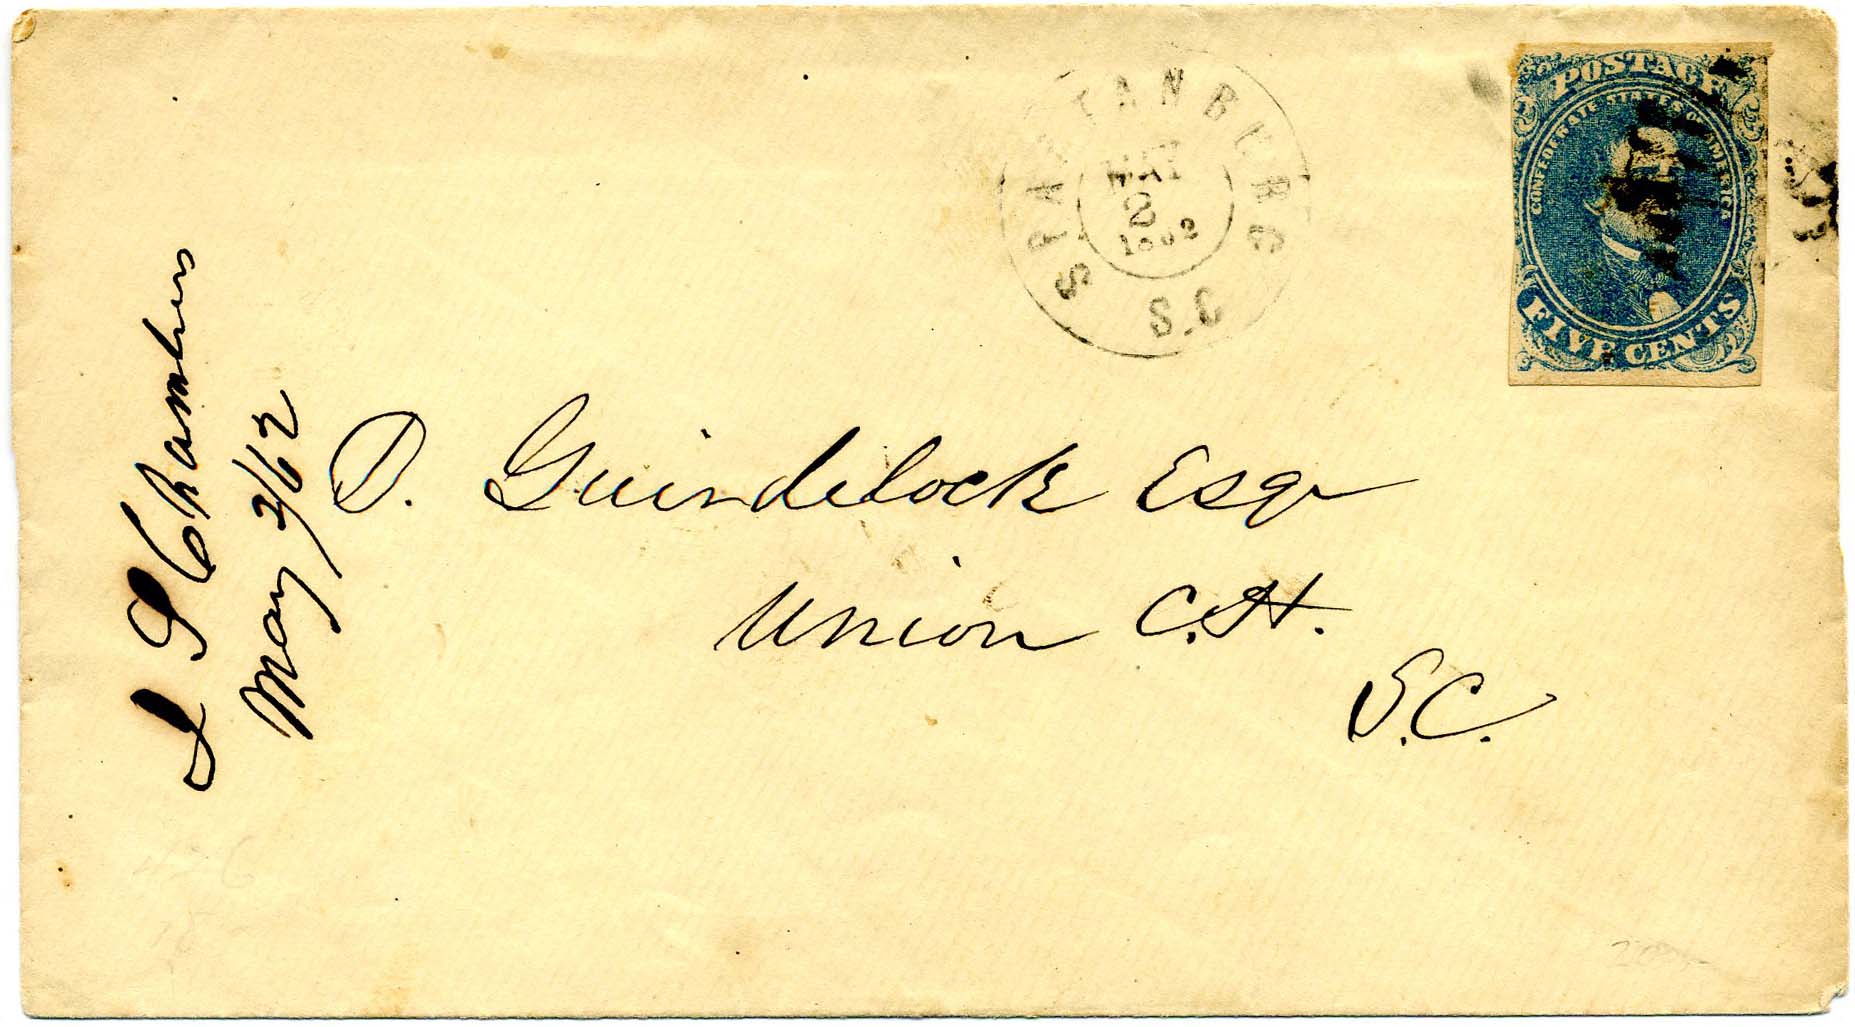 SPARTANBURG
MAY
2
1862
S.C
POSTAGE
CONFEDERATE STATES OF AMERICA
FIVE CENTS
D. Guindelock Esqr
Union C.H.
S.C.
J S Chambers
May 2/62